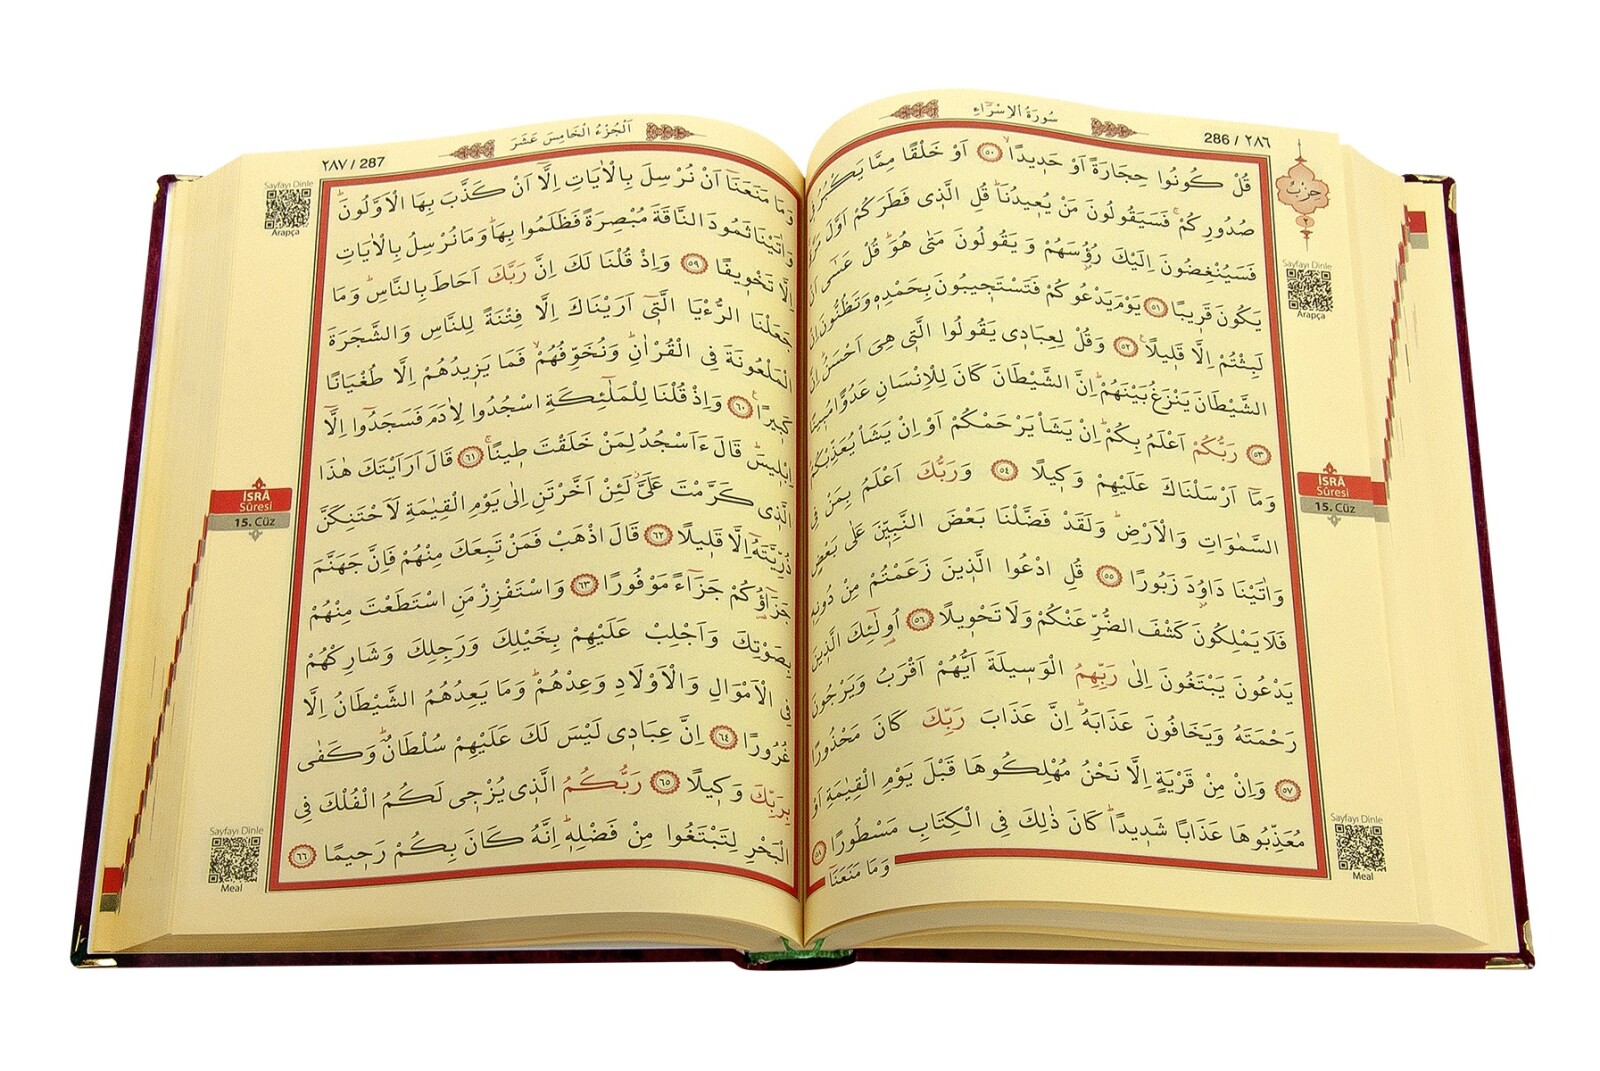 سُورَةُ الْاِسْرَاءِ
286 / ٢٨٦
حزب
٢
قُلْ كُونُوا حِجَارَةً اَوْ حَدٖيداًۙ ٥٠ اَوْ خَلْقًا مِمَّا يَكْبُرُ فٖى
صُدُورِكُمْۚ فَسَيَقُولُونَ مَنْ يُعٖيدُنَاۜ قُلِ الَّذٖى فَطَرَكُمْ اَوَّلَ مَرَّةٍ
فَسَيُنْغِضُونَ اِلَيْكَ رُؤُسَهُمْ وَيَقُولُونَ مَتٰى هُوَۜ قُلْ عَسٰٓى اَنْ
يَكُونَ قَرٖيبًا ٥١ يَوْمَ يَدْعُوكُمْ فَتَسْتَجٖيبُونَ بِحَمْدِهٖ وَتَظُنُّونَ اِنْ
لَبِثْتُمْ اِلَّا قَلٖيلًاۚ ٥٢ وَقُلْ لِعِبَادٖى يَقُولُوا الَّتٖى هِىَ اَحْسَنُۜ اِنَّ
الشَّيْطَانَ يَنْزَغُ بَيْنَهُمْۜ اِنَّ الشَّيْطَانَ كَانَ لِلْاِنْسَانِ عَدُوًّا مُبٖينًا
٥٣ رَبُّكُمْ اَعْلَمُ بِكُمْۜ اِنْ يَشَاْ يَرْحَمْكُمْ اَوْ اِنْ يَشَاْ يُعَذِّبْكُمْۜ
وَمَٓا اَرْسَلْنَاكَ عَلَيْهِمْ وَكٖيلًا ٥٤ وَرَبُّكَ اَعْلَمُ بِمَنْ فِى
السَّمٰوَاتِ وَالْاَرْضِۜ وَلَقَدْ فَضَّلْنَا بَعْضَ النَّبِيّٖنَ عَلٰى بَعْضٍ
وَاٰتَيْنَا دَاوُ۫دَ زَبُورًا ٥٥ قُلِ ادْعُوا الَّذٖينَ زَعَمْتُمْ مِنْ دُونِهٖ
فَلَا يَمْلِكُونَ كَشْفَ الضُّرِّ عَنْكُمْ وَلَا تَحْوٖيلًا ٥٦ اُو۬لٰٓئِكَ الَّذٖينَ
يَدْعُونَ يَبْتَغُونَ اِلٰى رَبِّهِمُ الْوَسٖيلَةَ اَيُّهُمْ اَقْرَبُ وَيَرْجُونَ
رَحْمَتَهُ وَيَخَافُونَ عَذَابَهُۜ اِنَّ عَذَابَ رَبِّكَ كَانَ مَحْذُورًا
٥٧ وَاِنْ مِنْ قَرْيَةٍ اِلَّا نَحْنُ مُهْلِكُوهَا قَبْلَ يَوْمِ الْقِيٰمَةِ اَوْ
مُعَذِّبُوهَا عَذَابًا شَدٖيداًۜ كَانَ ذٰلِكَ فِى الْكِتَابِ مَسْطُورًا ٥٨
وَمَا مَنَعَنَٓا
Sayfayı Dinle
Arapça
İSRÂ
Sûresi
15. Cüz
Sayfayı Dinle
Meal
اَلْجُزْءُ الْخَامِسَ عَشَرَ
٢٨٧ / 287
وَمَا مَنَعَنَٓا اَنْ نُرْسِلَ بِالْاٰيَاتِ اِلَّٓا اَنْ كَذَّبَ بِهَا الْاَوَّلُونَۜ
وَاٰتَيْنَا ثَمُودَ النَّاقَةَ مُبْصِرَةً فَظَلَمُوا بِهَاۜ وَمَا نُرْسِلُ بِالْاٰيَاتِ
اِلَّا تَخْوٖيفًا ٥٩ وَاِذْ قُلْنَا لَكَ اِنَّ رَبَّكَ اَحَاطَ بِالنَّاسِۜ وَمَا
جَعَلْنَا الرُّءْيَا الَّتٖٓى اَرَيْنَاكَ اِلَّا فِتْنَةً لِلنَّاسِ وَالشَّجَرَةَ
الْمَلْعُونَةَ فِى الْقُرْاٰنِۜ وَنُخَوِّفُهُمْۙ فَمَا يَزٖيدُهُمْ اِلَّا طُغْيَانًا
كَبٖيرًاۚ ٦٠ وَاِذْ قُلْنَا لِلْمَلٰٓئِكَةِ اسْجُدُوا لِاٰدَمَ فَسَجَدُٓوا اِلَّٓا
اِبْلٖيسَۜ قَالَ ءَاَسْجُدُ لِمَنْ خَلَقْتَ طٖينًاۚ ٦١ قَالَ اَرَاَيْتَكَ هٰذَا
الَّذٖى كَرَّمْتَ عَلَىَّۘ لَئِنْ اَخَّرْتَنِ اِلٰى يَوْمِ الْقِيٰمَةِ لَاَحْتَنِكَنَّ
ذُرِّيَّتَهُٓ اِلَّا قَلٖيلًا ٦٢ قَالَ اذْهَبْ فَمَنْ تَبِعَكَ مِنْهُمْ فَاِنَّ جَهَنَّمَ
جَزَٓاؤُ۬كُمْ جَزَٓاءً مَوْفُورًا ٦٣ وَاسْتَفْزِزْ مَنِ اسْتَطَعْتَ مِنْهُمْ
بِصَوْتِكَ وَاَجْلِبْ عَلَيْهِمْ بِخَيْلِكَ وَرَجِلِكَ وَشَارِكْهُمْ
فِى الْاَمْوَالِ وَالْاَوْلَادِ وَعِدْهُمْۜ وَمَا يَعِدُهُمُ الشَّيْطَانُ اِلَّا
غُرُورًا ٦٤ اِنَّ عِبَادٖى لَيْسَ لَكَ عَلَيْهِمْ سُلْطَانٌۜ وَكَفٰى
بِرَبِّكَ وَكٖيلًا ٦٥ رَبُّكُمُ الَّذٖى يُزْجٖى لَكُمُ الْفُلْكَ فِى
الْبَحْرِ لِتَبْتَغُوا مِنْ فَضْلِهٖۜ اِنَّهُ كَانَ بِكُمْ رَحٖيمًا ٦٦
Sayfayı Dinle
Arapça
İSRÂ
Sûresi
15. Cüz
Sayfayı Dinle
Meal